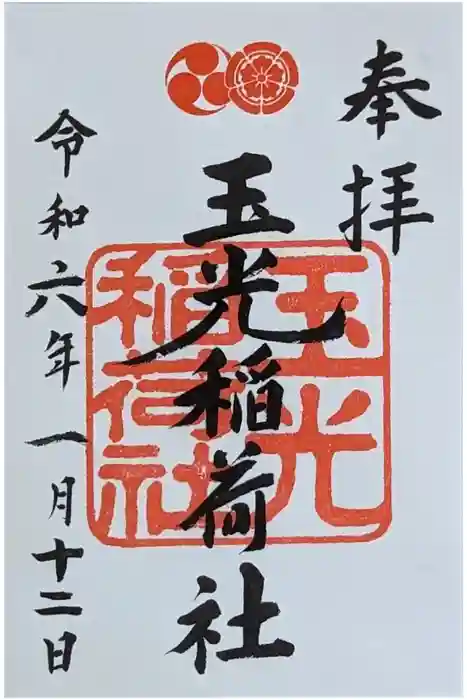 奉拝
玉光稲荷社
玉光
稲荷社
令和六年一月十二日